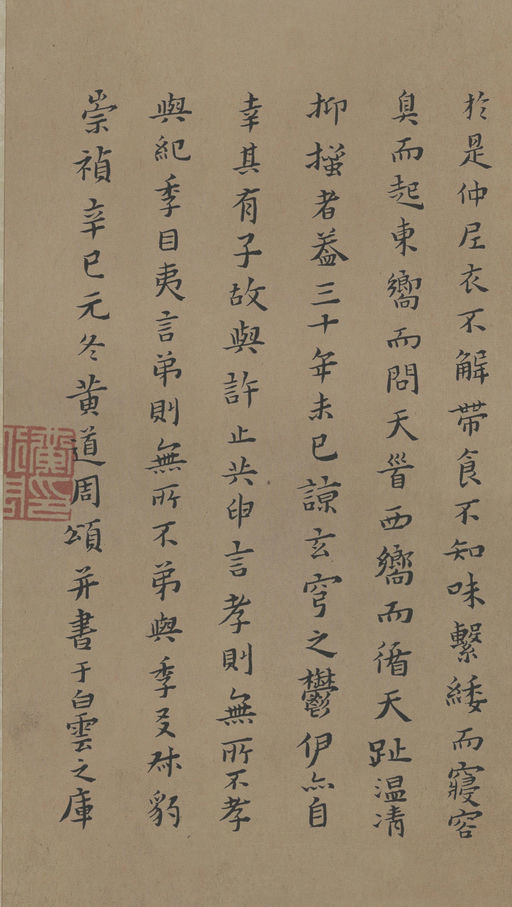 於是仲尼衣不解帶食不知味繫緌而寢容
臭而起東嚮而問天首西嚮而循天趾温凊
抑搔者葢三十年未已諒玄穹之鬱伊亦自
幸其有子故與許止共申言孝則無所不孝
與紀季目夷言弟則無所不弟與季友叔豹
崇禎辛巳元冬黄道周頌并書于白雲之庫